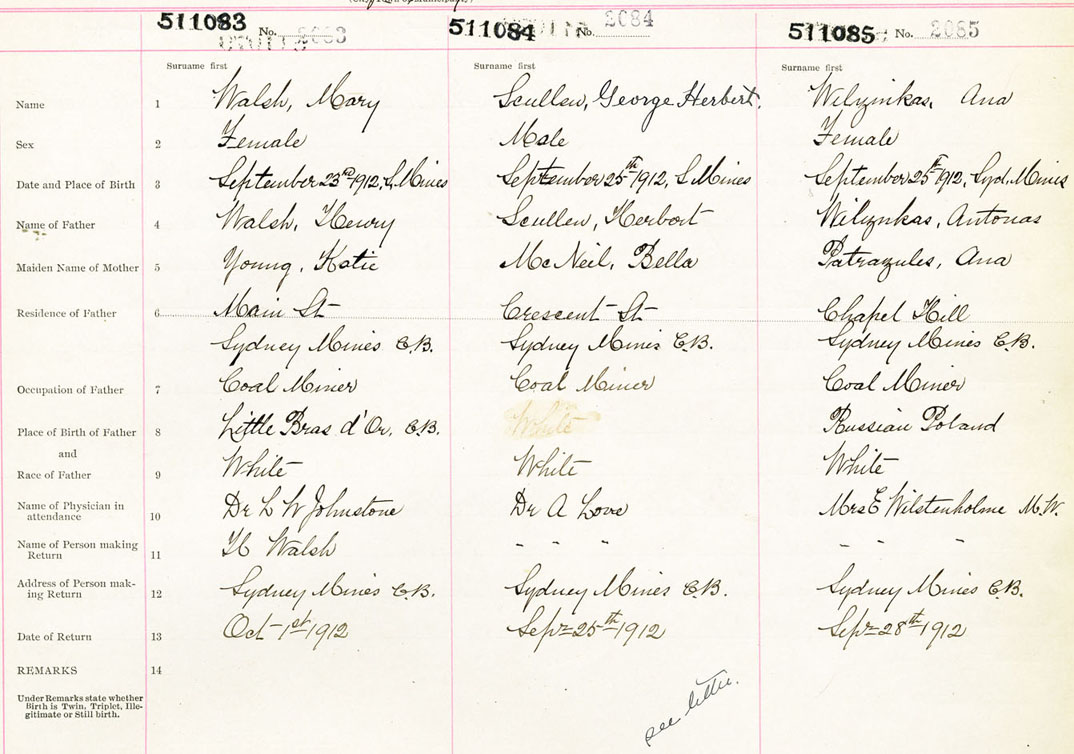 511083 No. 2083 511084 No. 2084 511085 No. 2085
Surname first Surname first Surname first
Name 1 Walsh, Mary Scullen, George Herbert. Wilyinkas, Ana
Sex 2 Female Male Female
Date and Place of Birth 3 September 23rd 1912, S. Mines September 25th 1912, S Mines September 25th 1912, Syd. Mines
Name of Father 4 Walsh, Henry Scullen, Herbert Wilynkas, Antonas
Maiden Name of Mother 5 Young, Katie McNeil, Bella Patrazules, Ana
Residence of Father 6 Main St Crescent St Chapel Hill
Sydney Mines C.B. Sydney Mines C.B. Sydney Mines C.B.
Occupation of Father 7 Coal Miner Coal Miner Coal Miner
Place of Birth of Father 8 Little Bras d'Or, C.B. White Russian Poland
and
Race of Father 9 White White White
Name of Physician in
attendance 10 Dr L W Johnstone Dr A Love Mrs E Wilstenholme M.W.
Name of Person making
Return 11 H Walsh " " " " " "
Address of Person mak-
ing Return 12 Sydney Mines C.B. Sydney Mines C.B. Sydney Mines C.B.
Date of Return 13 Oct 1st 1912 Sept 25th 1912 Sept 28th 1912
REMARKS 14
Under Remarks state whether
Birth is Twin, Triplet, Ille-
gitimate or Still birth.
see letter.